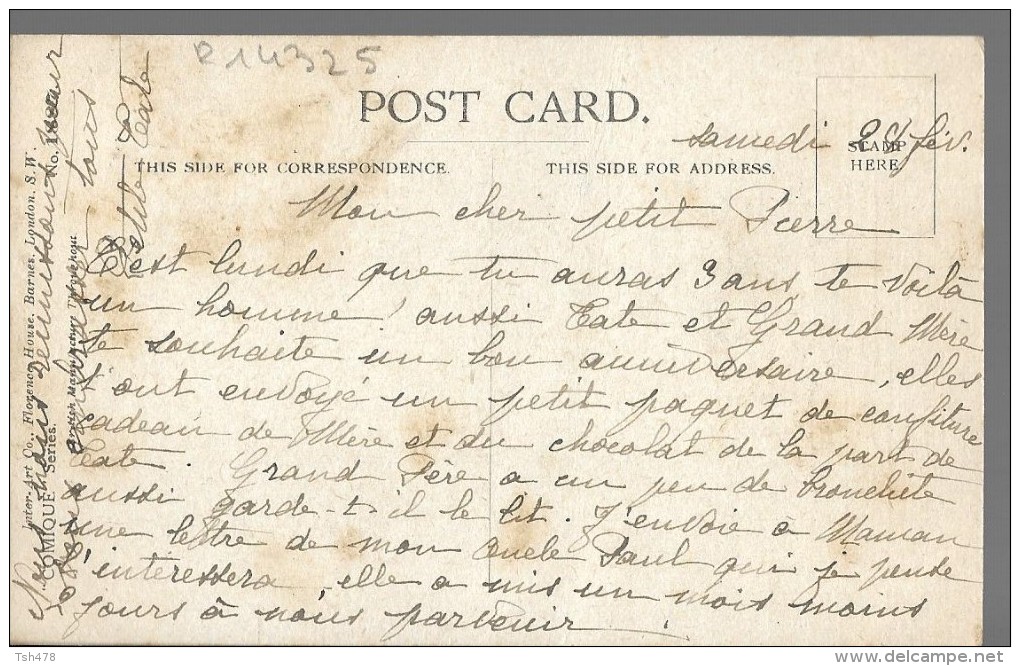 R14325
POST CARD.
samedi 29 fév.
STAMP
HERE.
THIS SIDE FOR CORRESPONDENCE.
THIS SIDE FOR ADDRESS.
Mon cher petit Pierre
C'est lundi que tu auras 3 ans te voilà
un homme! aussi Tate et Grand Mère
te souhaite un bon anniversaire, elles
t'ont envoyé un petit paquet de confiture
cadeau de Mère et du chocolat de la part de
Tate. Grand Père a un peu de bronchite
aussi garde-t-il le lit. J'envoie à Maman
une lettre de mon Oncle Paul qui je pense
l'intéressera, elle a mis un mois moins
jours à nous parvenir.
Inter-Art Co., Florence House, Barnes, London, S.W.
COMIQUE Series. No.
British Manufacture Throughout
Nous
tous
Tate
Tsh478
delcampe.net